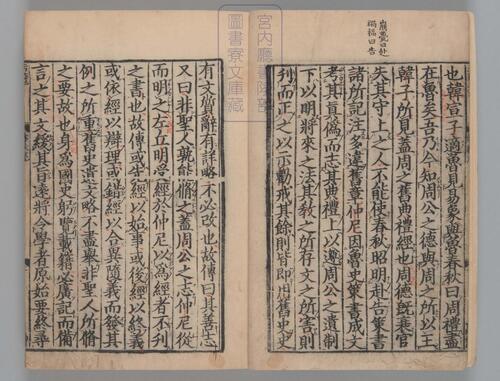 崩薨曰赴
禍福曰告
也韓宣子適魯見易象與魯春秋曰周禮盡
在魯矣吾乃今知周公之德與周之所以王
韓子所見蓋周之舊典禮經也周德既衰官
失其守上之人不能使春秋昭明赴告策書
諸所記注多違舊章仲尼因魯史策書成文
考其真偽而志其典禮上以遵周公之遺制
下以明將來之法其教之所存文之所害則
刋而正之以示勸戒其餘則皆即用舊史史
宮內廳書陵部
圖書寮文庫藏
有文質辭有詳略不必改也故傳曰其善志
又曰非聖人孰能脩之蓋周公之志仲尼從
而明之左丘明受經於仲尼以為經者不刋
之書也故傳或先經以始事或後經以終義
或依經以辯理或錯經以合異隨義而發其
例之所重舊史遺文略不盡舉非聖人所脩
之要故也身為國史躬覽載籍必廣記而備
言之其文緩其旨遠將令學者原始要終尋